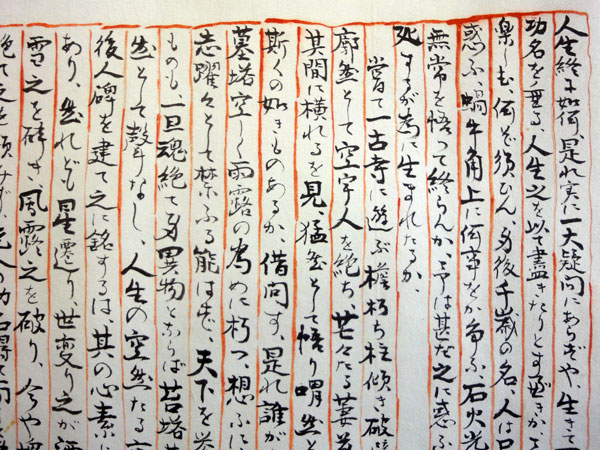 人生終に如何、是れ実に一大疑問にあらずや、生きて
功名を要る、人生之を以て盡きたりとす可きか
楽しも、何ぞ須ひん、身後千歳の名、人は
惑ふ、蝸牛角上に何事をか争ふ、石火光
無常を悟って終らんか、予は甚だ之に惑ふ
死するが為に生まれたるか、
嘗て一古寺に遊ぶ、檐朽ち柱傾き破
廓然として空宇人を絶ち、茫々たる萋
其間に横れるを見、猛然として悟り喟然と
斯くの如きものあるか、借問す、是れ誰が
墓塔空しく雨露の為めに朽つ、想ふに
志躍々として禁ふる能はず、天下を
ものも一旦魂絶て身異物とならば苔塔
然として聲なし、人生の空然たる
後人碑を建て之に銘するは、其の心素に
あり、然れども星遷り、世変り之が
雪之を砕き、風露之を破り、今や
絶て之を顧みず、